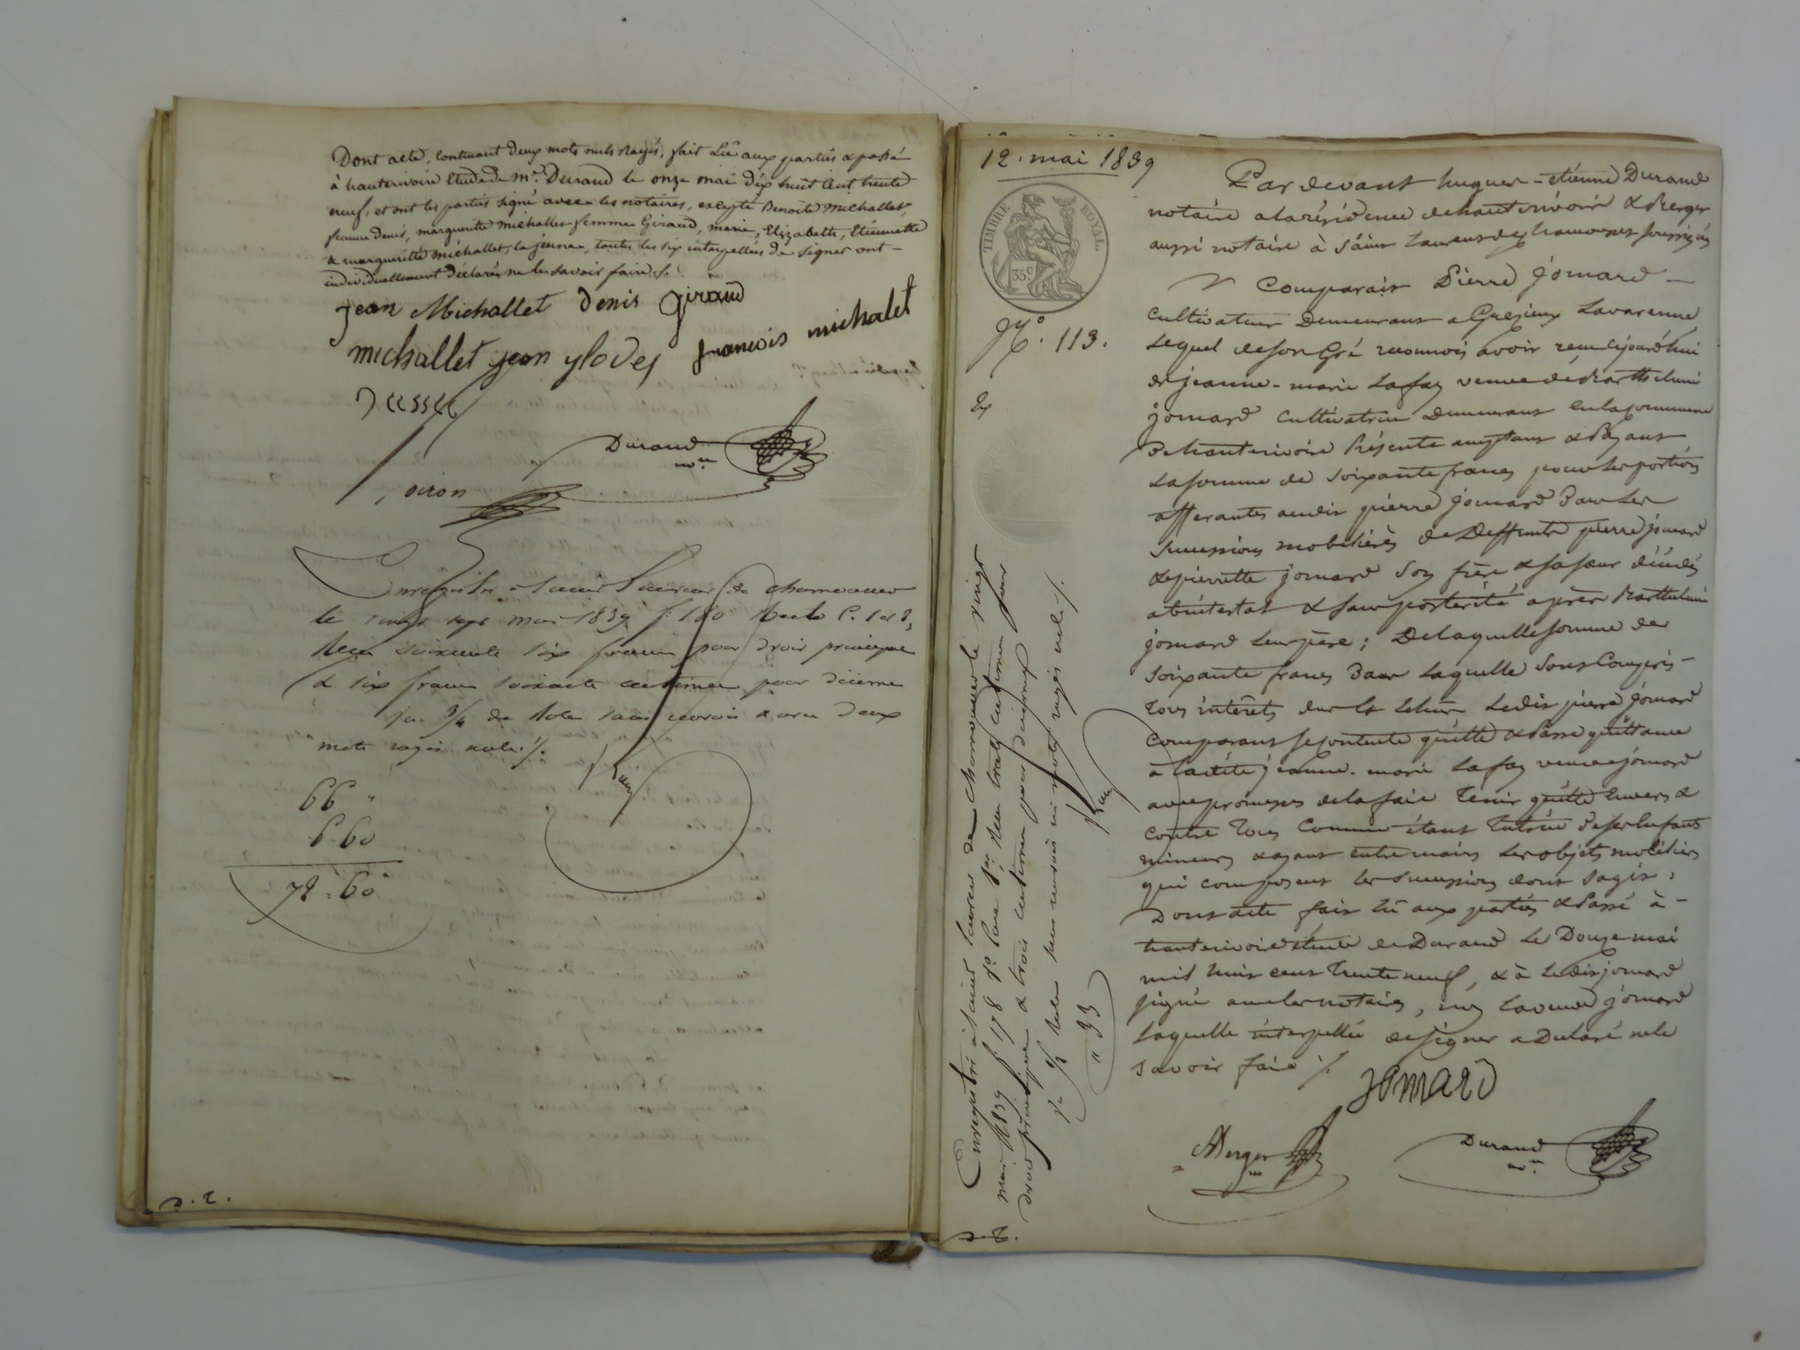 Dont acte, contenant deux mots nuls rayés, fait lu aux parties & passé
à hauterivoire Etude de Me. Durand le onze mai dix huit cent trente
neuf, et ont les parties signé avec les notaires, excepté Benoite Michallet,
femme denis, marguerite michallet femme Giraud, marie, Elizabeth, Etiennette
& marguerite michallet, la jeune, toutes les six interpellées de signer ont –
individuellement déclarés ne le savoir faire
jean Michallet denis giraud
michallet jean francois michalet
Durand
nre
Enregistré à saint laurent de chamousset
le vingt mai 1839 f. 180
Reçu soixante six francs pour droit principal
& six francs soixante centimes pour décime
mots rayés nuls ./.
66 "
6.60
72.60
12. mai 1839
TIMBRE ROYAL
35c
No. 113.
Par devant hugues-étienne Durand
notaire à la résidence de hauterivoire & Berger
aussi notaire à saint laurent de chamousset soussignés
Comparait Pierre jomard –
cultivateur demeurant a Grezieux Lavarenne
Lequel de son Gré reconnois avoir reçu cejourd'hui
de jeanne-marie Lafay veuve de Barthelemi
jomard cultivatrice demeurant en la commune
De hauterivoire Présente acceptant & Payant
La somme de soixante francs pour les portions
afferantes audit pierre jomard Dans les
successions mobiliérès de Deffunts pierre jomard
& pierrette jomard son frère & sa sœur décédés
abintestat & sans postérité après Barthelemi
jomard leur père ; De laquelle somme de
soixante francs Dans laquelle sont Compris –
tous intérêts Ledit pierre jomard
comparant se contente quitte & Passe quittance
à ladite jeanne-marie Lafay veuve jomard
avec promesses de la faire tenir quitte Envers &
contre tous Comme étant tutrice de ses Enfants
mineurs & ayant entre mains les objets mobiliers
qui composent les successions dont s'agit ;
Dont acte fait lu aux parties & Passé à –
hauterivoire étude de Durand Le Douze mai
mil huit cent trente neuf, & à Ledit jomard
signé avec les notaires, non la veuve jomard
Laquelle interpellée de signer a Déclaré ne le
savoir faire ./.
jomard
Berger
nre
Durand
nre
Enregistré à saint laurent de chamousset le vingt
mai 1839 f. 178
droit principal & trois centimes pour décime
" 33